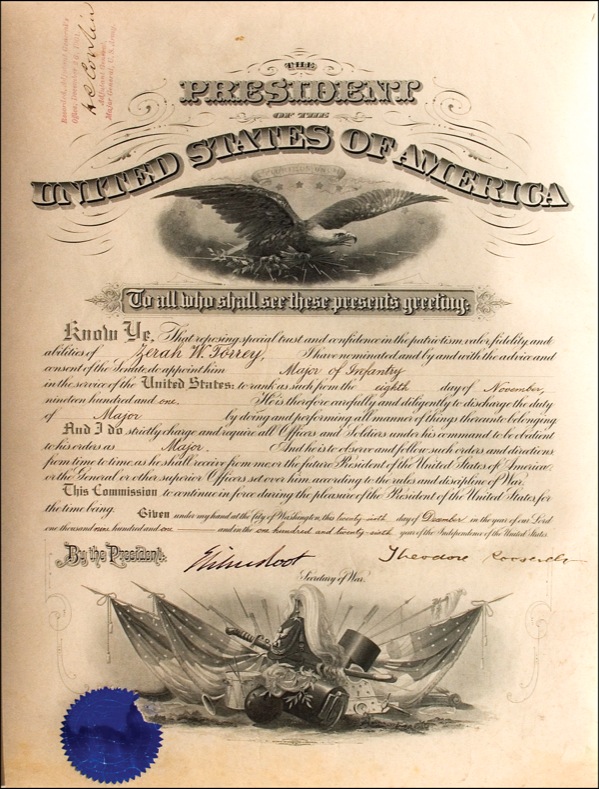 Recorded, Adjutant General's
Office, December 26, 1901.
H C Corbin
Adjutant General,
Major General, U. S. Army.
THE
PRESIDENT
OF THE
UNITED STATES OF AMERICA
E PLURIBUS UNUM
To all who shall see these presents greeting:
Know Ye, That reposing special trust and confidence in the patriotism, valor, fidelity, and
abilities of Zerah W. Torrey, I have nominated and by and with the advice and
consent of the Senate, do appoint him Major of Infantry
in the service of the United States: to rank as such from the eighth day of November,
nineteen hundred and one. He is therefore carefully and diligently to discharge the duty
of Major by doing and performing all manner of things thereunto belonging.
And I do strictly charge and require all Officers and Soldiers under his command to be obedient
to his orders as Major. And he is to observe and follow such orders and directions
from time to time, as he shall receive from me, or the future President of the United States of America,
or the General or other superior Officers set over him, according to the rules and discipline of War.
This Commission to continue in force during the pleasure of the President of the United States for
the time being.
Given under my hand at the City of Washington, this twenty-sixth day of December in the year of our Lord
one thousand nine hundred and one and in the one hundred and twenty-sixth year of the Independence of the United States
By the President:
Elihu Root
Theodore Roosevelt
Secretary of War.